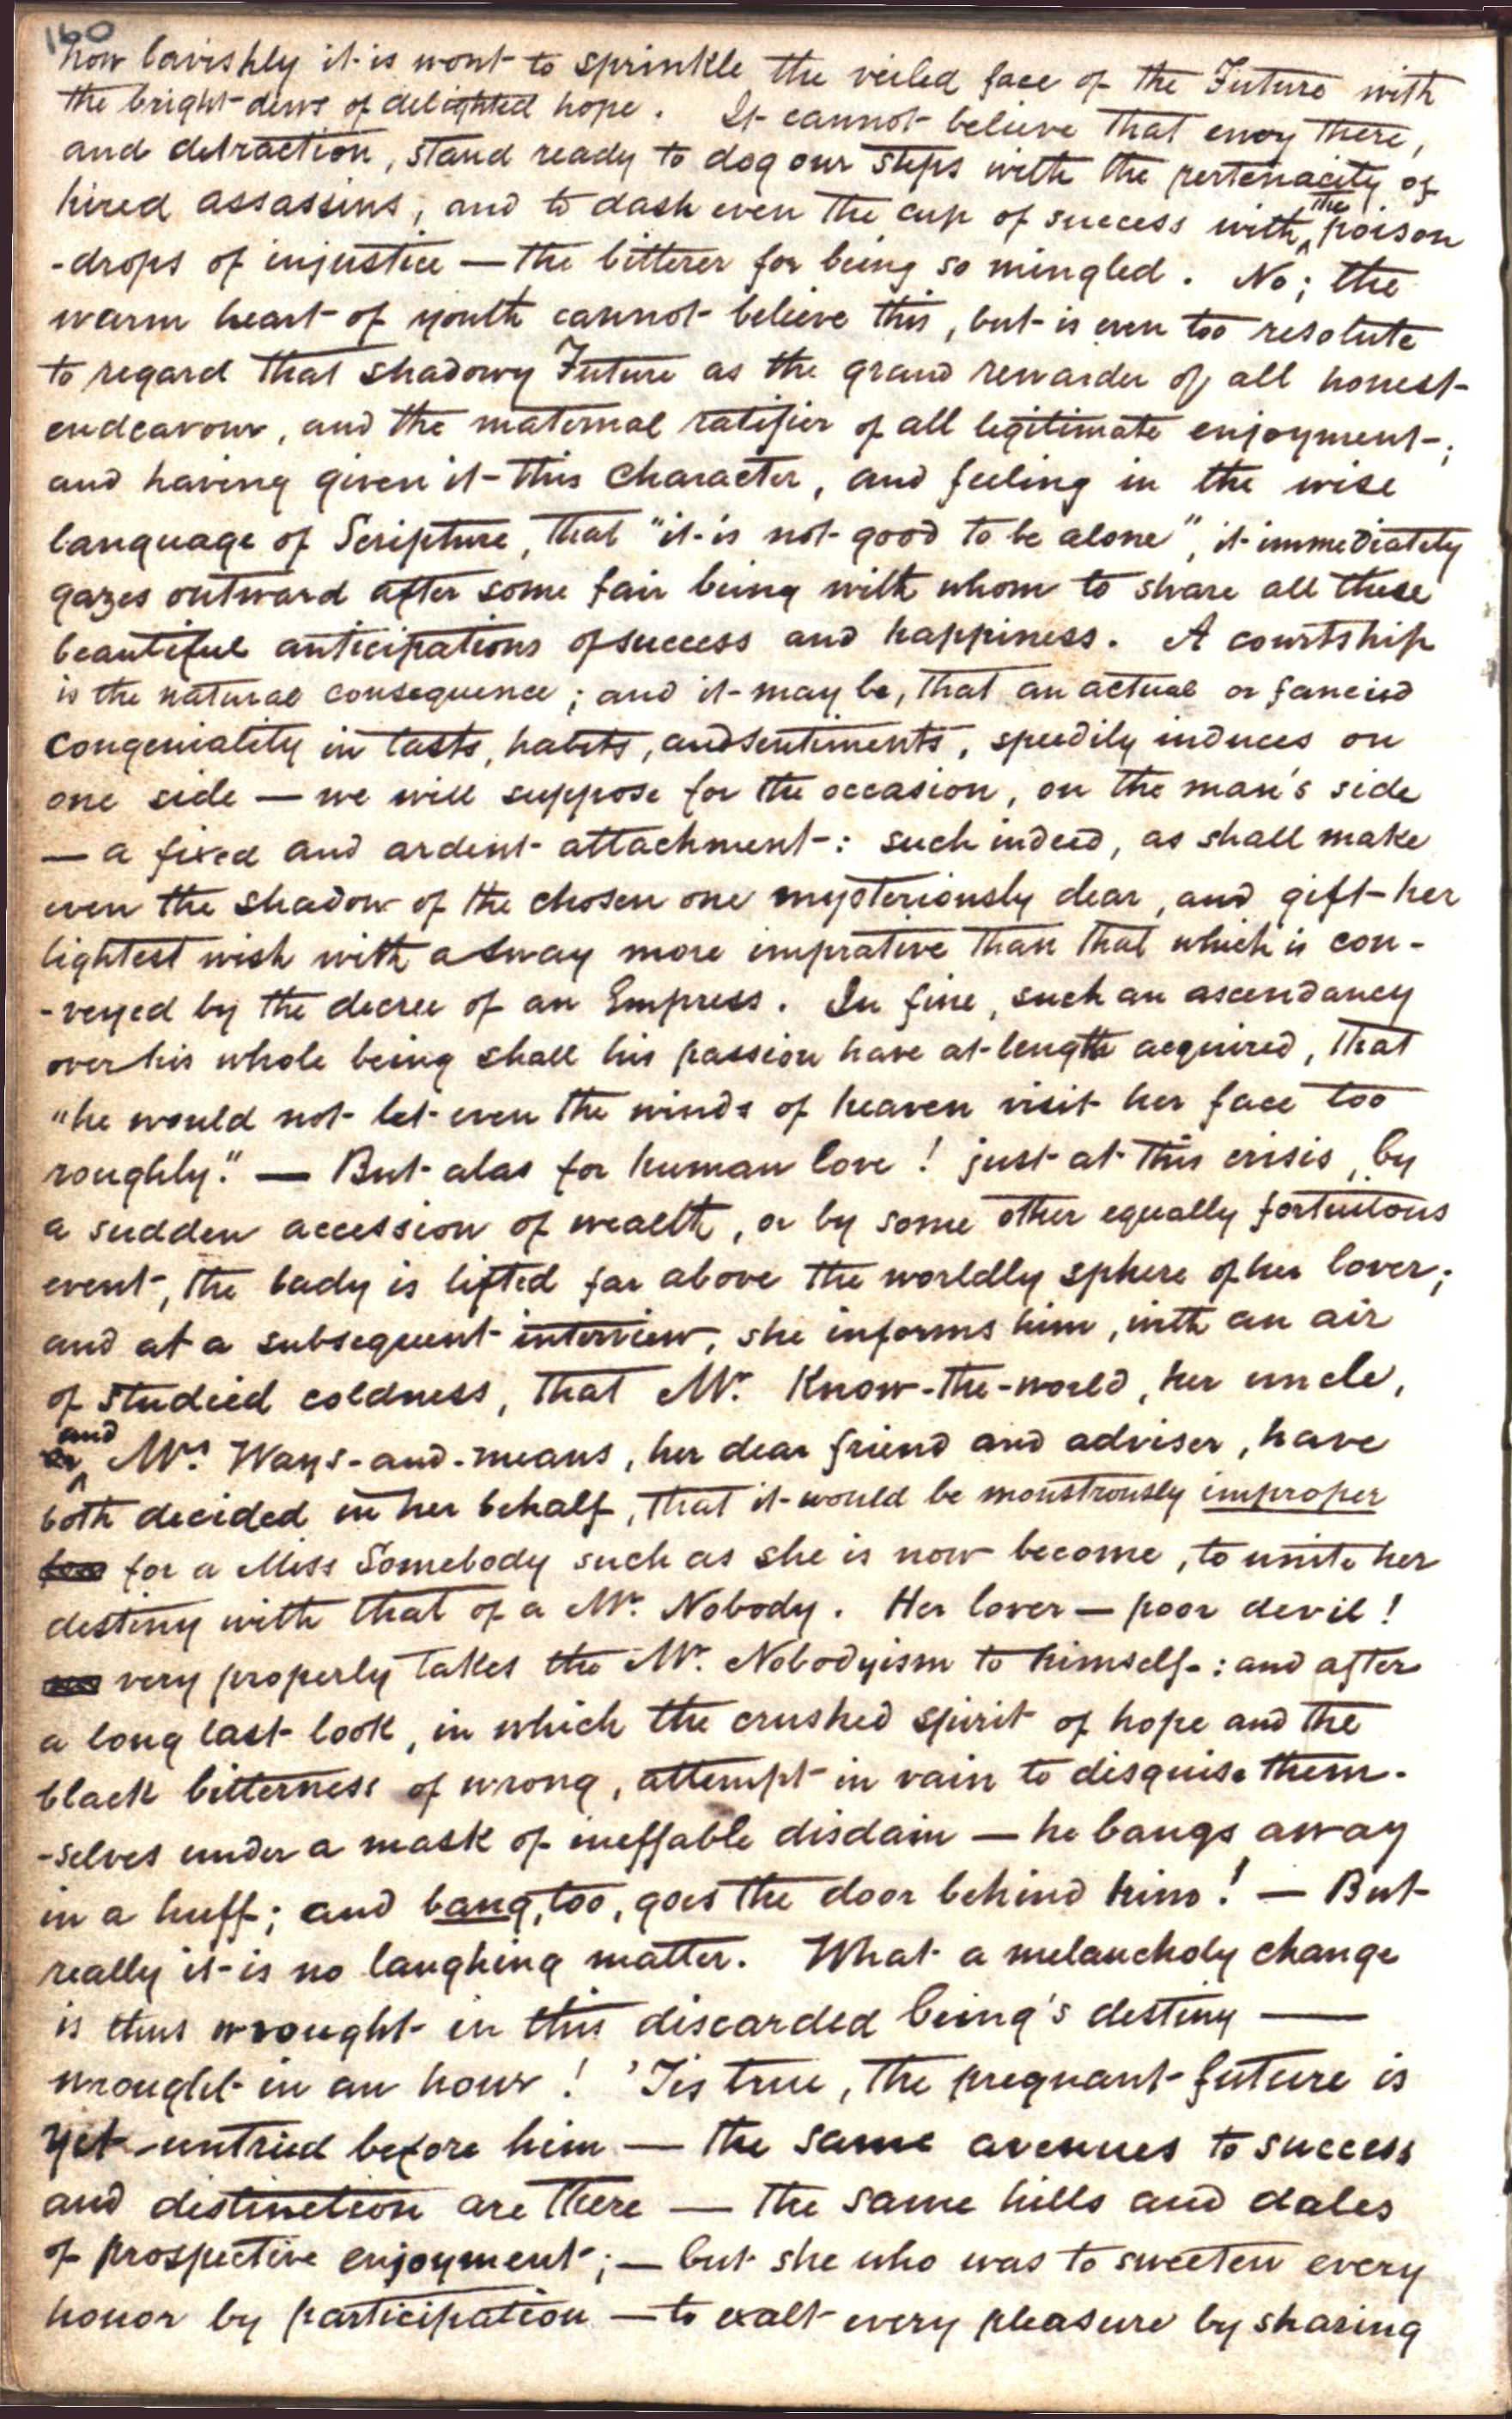 160
how lavishly it is wont to sprinkle the veiled face of the Future with
the bright dews of delighted hope. It cannot believe that envy there,
and detraction, stand ready to dog our steps with the pertenacity of
hired assassins, and to dash even the cup of success with the poison
-drops of injustice — the bitterer for being so mingled. No; the
warm heart of youth cannot believe this, but is even too resolute
to regard that shadowy Future as the grand rewarder of all honest
endeavour, and the maternal ratifier of all legitimate enjoyment;
and having given it this character, and feeling in the wise
language of Scripture, that "it is not good to be alone", it immediately
gazes outward after some fair being with whom to share all these
beautiful anticipations of success and happiness. A courtship
is the natural consequence; and it may be, that an actual or fancied
congeniality in tasts, habits, and sentiments, speedily induces on
one side — we will suppose for the occasion, on the man's side
— a fixed and ardent attachment: such indeed, as shall make
even the shadow of the chosen one mysteriously dear, and gift her
lightest wish with a sway more imprative than that which is con-
-veyed by the decree of an Empress. In fine, such an ascendancy
over his whole being shall his passion have at length acquired, that
"he would not let even the winds of heaven visit her face too
roughly." — But alas for human love! just at this crisis, by
a sudden accession of wealth, or by some other equally fortuitous
event, the lady is lifted far above the worldly sphere of her lover;
and at a subsequent interview, she informs him, with an air
of studied coldness, that Mr. Know-the-world, her uncle,
and Mrs. Ways-and-means, her dear friend and adviser, have
both decided in her behalf, that it would be monstrously improper
for a Miss Somebody such as she is now become, to unite her
destiny with that of a Mr. Nobody. Her lover — poor devil!
very properly takes the Mr. Nobodyism to himself: and after
a long last look, in which the crushed spirit of hope and the
black bitterness of wrong, attempt in vain to disguise them-
-selves under a mask of ineffable disdain — he bangs away
in a huff; and bang, too, goes the door behind him! — But
really it is no laughing matter. What a melancholy change
is thus wrought in this discarded being's destiny —
wrought in an hour! 'Tis true, the pregnant future is
yet untried before him — the same avenues to success
and distinction are there — the same hills and dales
of prospective enjoyment; — but she who was to sweeten every
honor by participation — to exalt every pleasure by sharing